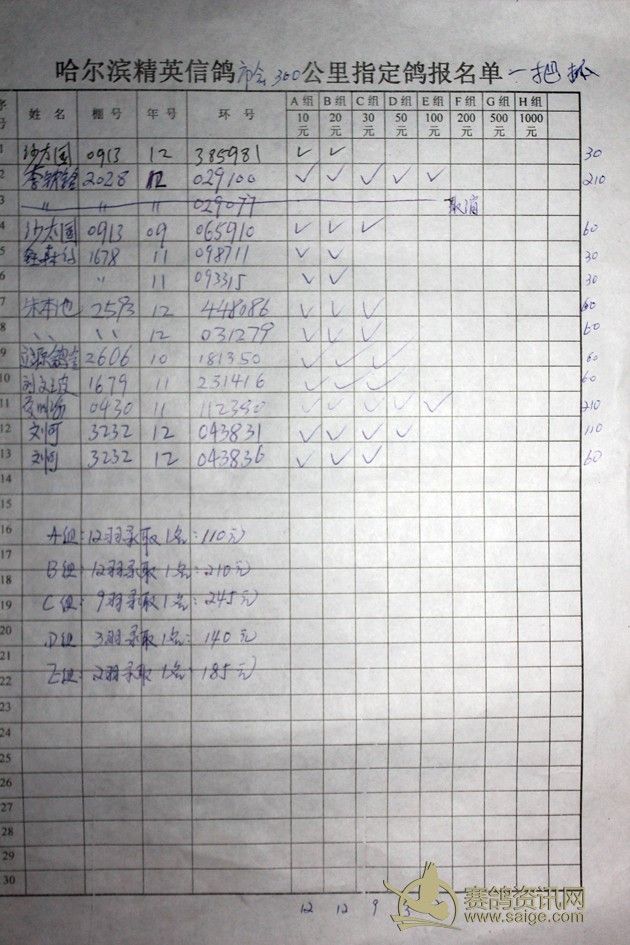 哈尔滨精英信鸽市会300公里指定鸽报名单 一把抓
序号 姓名 棚号 年号 环号 A组10元 B组20元 C组30元 D组50元 E组100元 F组200元 G组500元 H组1000元
1 沙太国 0913 12 385981 ✓ ✓ 30
2 2028 12 029100 ✓ ✓ ✓ ✓ ✓ 210
3 〃 〃 〃 029077 取消
4 沙太国 0913 09 065910 ✓ ✓ ✓ 60
5 1678 11 098711 ✓ ✓ 30
6 〃 11 093315 ✓ ✓ 30
7 朱本地 2593 12 448086 ✓ ✓ ✓ 60
8 〃 〃 12 031279 ✓ ✓ ✓ 60
9 2606 10 181350 ✓ ✓ ✓ 60
10 1679 11 231416 ✓ ✓ ✓ 60
11 0430 11 112390 ✓ ✓ ✓ ✓ ✓ 210
12 刘可 3232 12 043831 ✓ ✓ ✓ ✓ 110
13 刘可 3232 12 043836 ✓ ✓ ✓ 60
14
15
16 A组:12羽录取1名:110元
17 B组:12羽录取1名:210元
18
19 C组:9羽录取1名:245元
20 D组 3羽录取1名:140元
21
22 E组:2羽录取1名:185元
23
24
25
26
27
28
29
30
12 12 9 3
赛鸽资讯网
www.saige.com